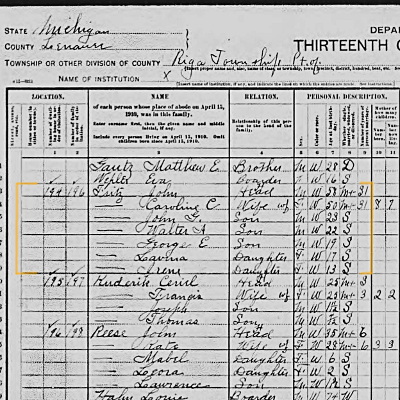 STATE Michigan
COUNTY Lenawee
TOWNSHIP OR OTHER DIVISION OF COUNTY Riga Township Pt. of
NAME OF INSTITUTION X
DEPA
THIRTEENTH C
LOCATION. NAME RELATION. PERSONAL DESCRIPTION.
of each person whose place of abode on April 15, 1910, was in this family.
Enter surname first, then the given name and middle initial, if any.
Include every person living on April 15, 1910. Omit children born since April 15, 1910.
Relationship of this person to the head of the family.
1 2 3 4 5 6 7 8 9 10 11
Matthew E. Brother M W 28 S
Eva Boarder F W 16 S
194 196 Fritz John Head M W 58 M1 31
— Caroline C. Wife F W 50 M1 31 8 7
— John F. Son M W 23 S
— Walter A Son M W 22 S
— George E Son M W 19 S
— Lavina Daughter F W 17 S
— Irene Daughter F W 13 S
195 197 Head M W 25 M1 3
— Francis Wife F W 21 M1 3 2 2
— Joseph Son M W
— Thomas Son M W
196 198 Reese John Head M W 35 M1 6
— Kate Wife F W 28 M1 6 3 3
— Mabel Daughter F W 6 S
— Leora Daughter F W 2 S
— Lawrence Son M W
Louie Boarder M W